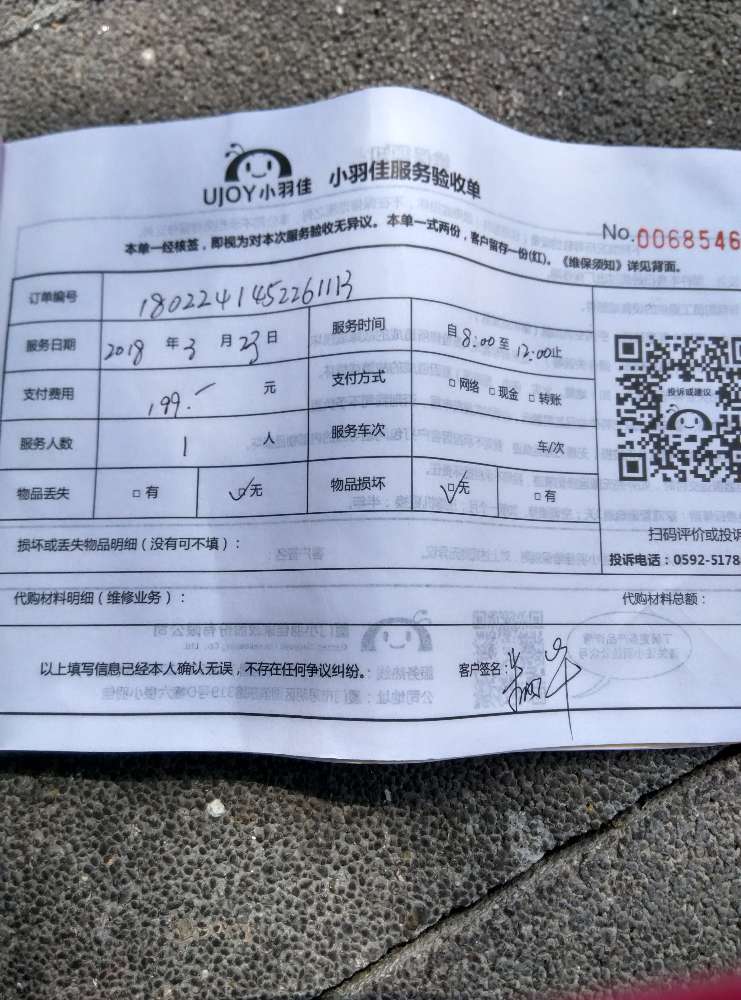 UJOY小羽佳 小羽佳服务验收单
No.0068546
本单一经核签，即视为对本次服务验收无异议。本单一式两份，客户留存一份(红)。《维保须知》详见背面。
订单编号 1802241452261113
服务日期 2018 年 3 月 23 日 服务时间 自 8:00 至 12:00止
支付费用 199.- 元 支付方式 □网络 □现金 □转账
服务人数 1 人 服务车次 车/次
物品丢失 □有 ☑无 物品损坏 ☑无 □有
投诉或建议
扫码评价或投诉
投诉电话：0592-5178
损坏或丢失物品明细（没有可不填）：
代购材料明细（维修业务）： 代购材料总额：
以上填写信息已经本人确认无误，不存在任何争议纠纷。 客户签名：